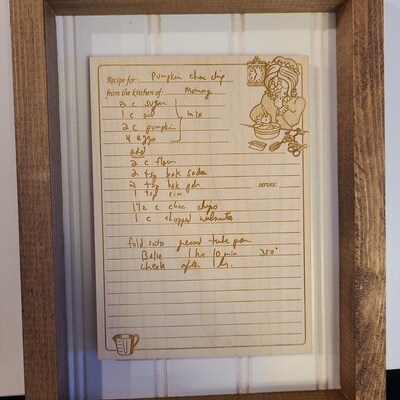 Recipe for: Pumpkin choc chip
from the kitchen of: Mommy
2 c sugar
1 c oil
mix
2 c pumpkin
4 eggs
add
2 c flour
2 tsp bak soda
2 tsp bak pow
serves:
1 tsp cin
1½ c choc chips
1 c chopped walnuts
fold into tube pan
Bake 1 hr 10 min 350°
check after 1 h.